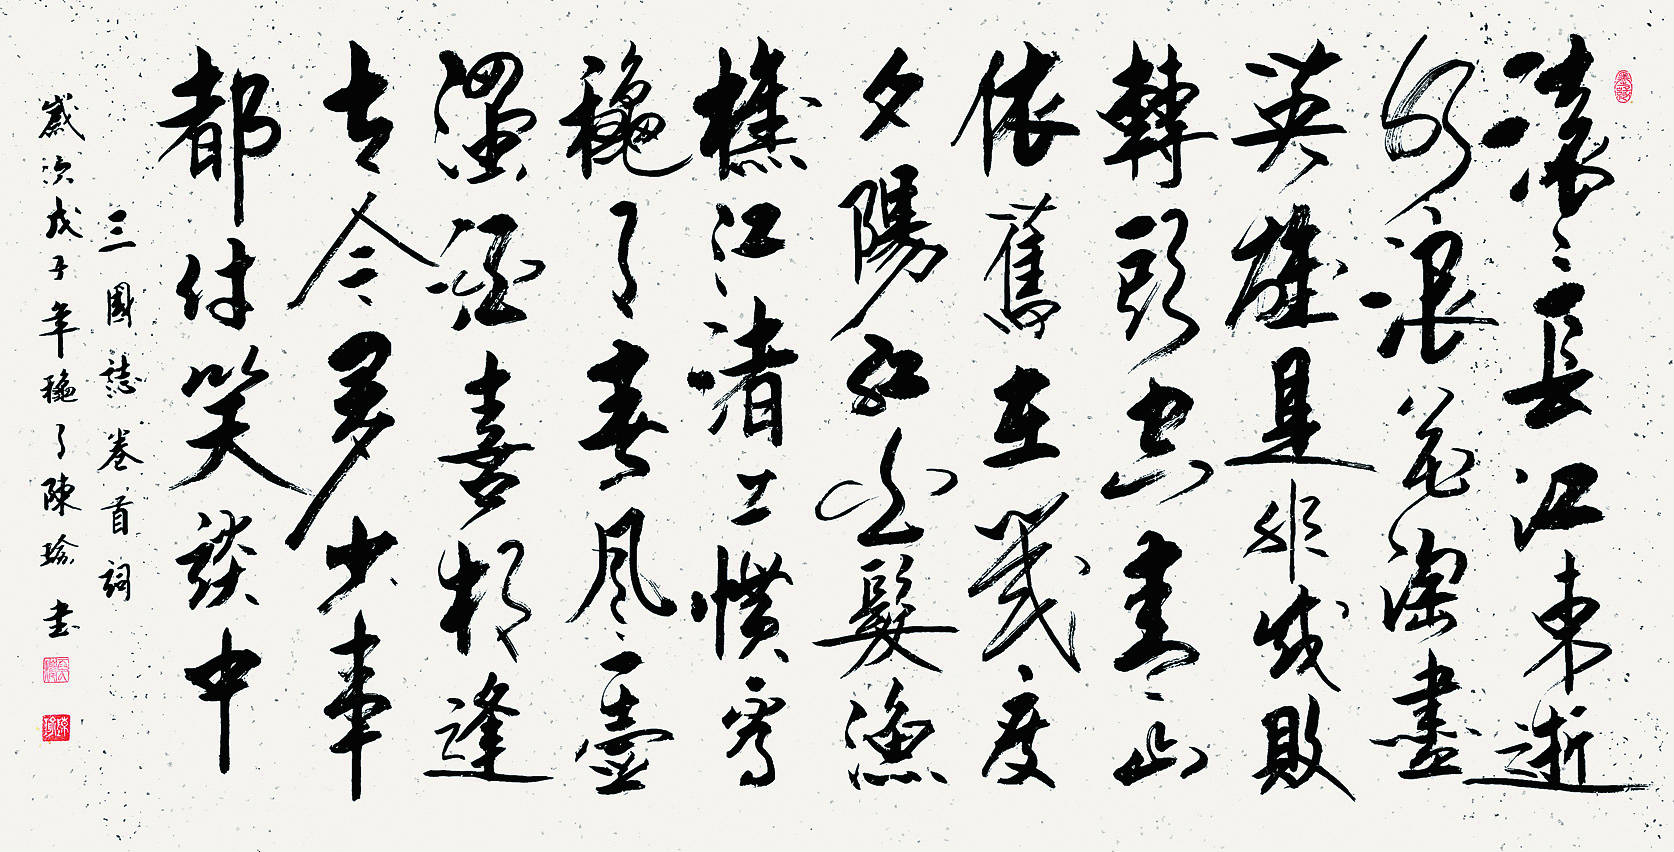 滚々長江東逝
水浪花淘盡
英雄是非成敗
轉頭空青山
依舊在幾度
夕陽紅白髮漁
樵江渚上慣看
龝月春風一壺
濁酒喜相逢
古今多少事
都付笑談中
三國誌卷首詞
歲次戊子年龝月陳瑜書